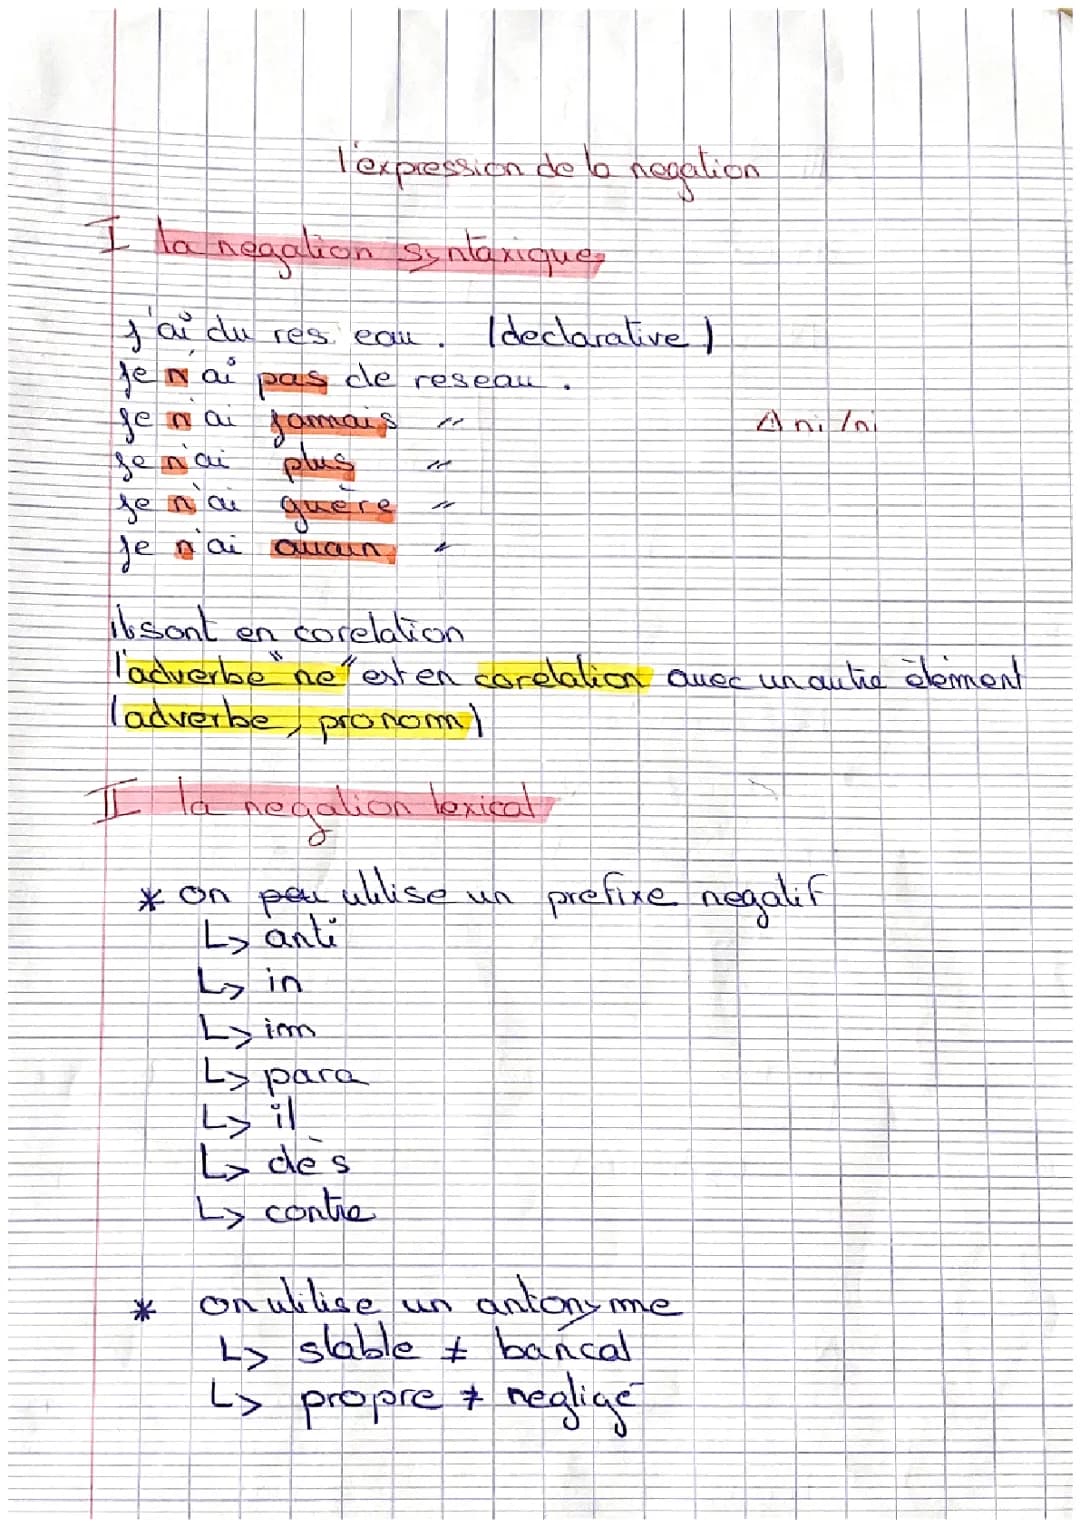 l'expression de la negation
I la negation syntaxique
j'ai du reseau. (declarative)
je n'ai pas de reseau.
je n'ai jamais "
⚠ ni/ni
je n'ai plus "
je n'ai guère "
je n'ai aucun "
ils sont en corelation
l'adverbe "ne" est en corelation avec un autre élement
(adverbe, pronom)
II la negation lexical
* on peu utilise un prefixe negatif
↳ anti
↳ in
↳ im
↳ para
↳ il
↳ dés
↳ contre
* on utilise un antonyme
↳ stable ≠ bancal
↳ propre ≠ negligé